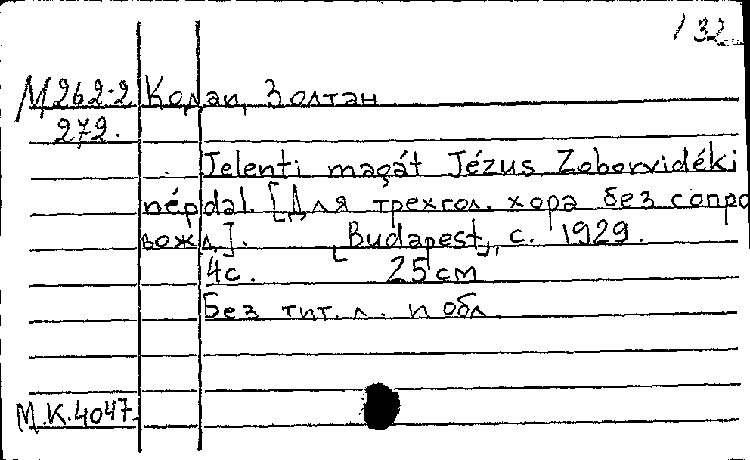 132
М262-2 Кодаи, Золтан
272.
Jelenti magát Jézus Zoborvidéki
népdal. [Для трехгол. хора без сопро
вожд]. [Budapest], c. 1929.
4с. 25 см
Без тит. л. и обл.
М.К.4047.